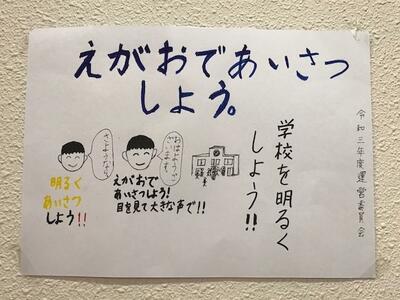 えがおであいさつ
しよう。
学校を明るく
しよう!!
令和三年度運営委員会
さようなら。
おはようご
ざいます。
明るく
あいさつ
しよう!!
えがおで
あいさつしよう!
目を見て大きな声で!!